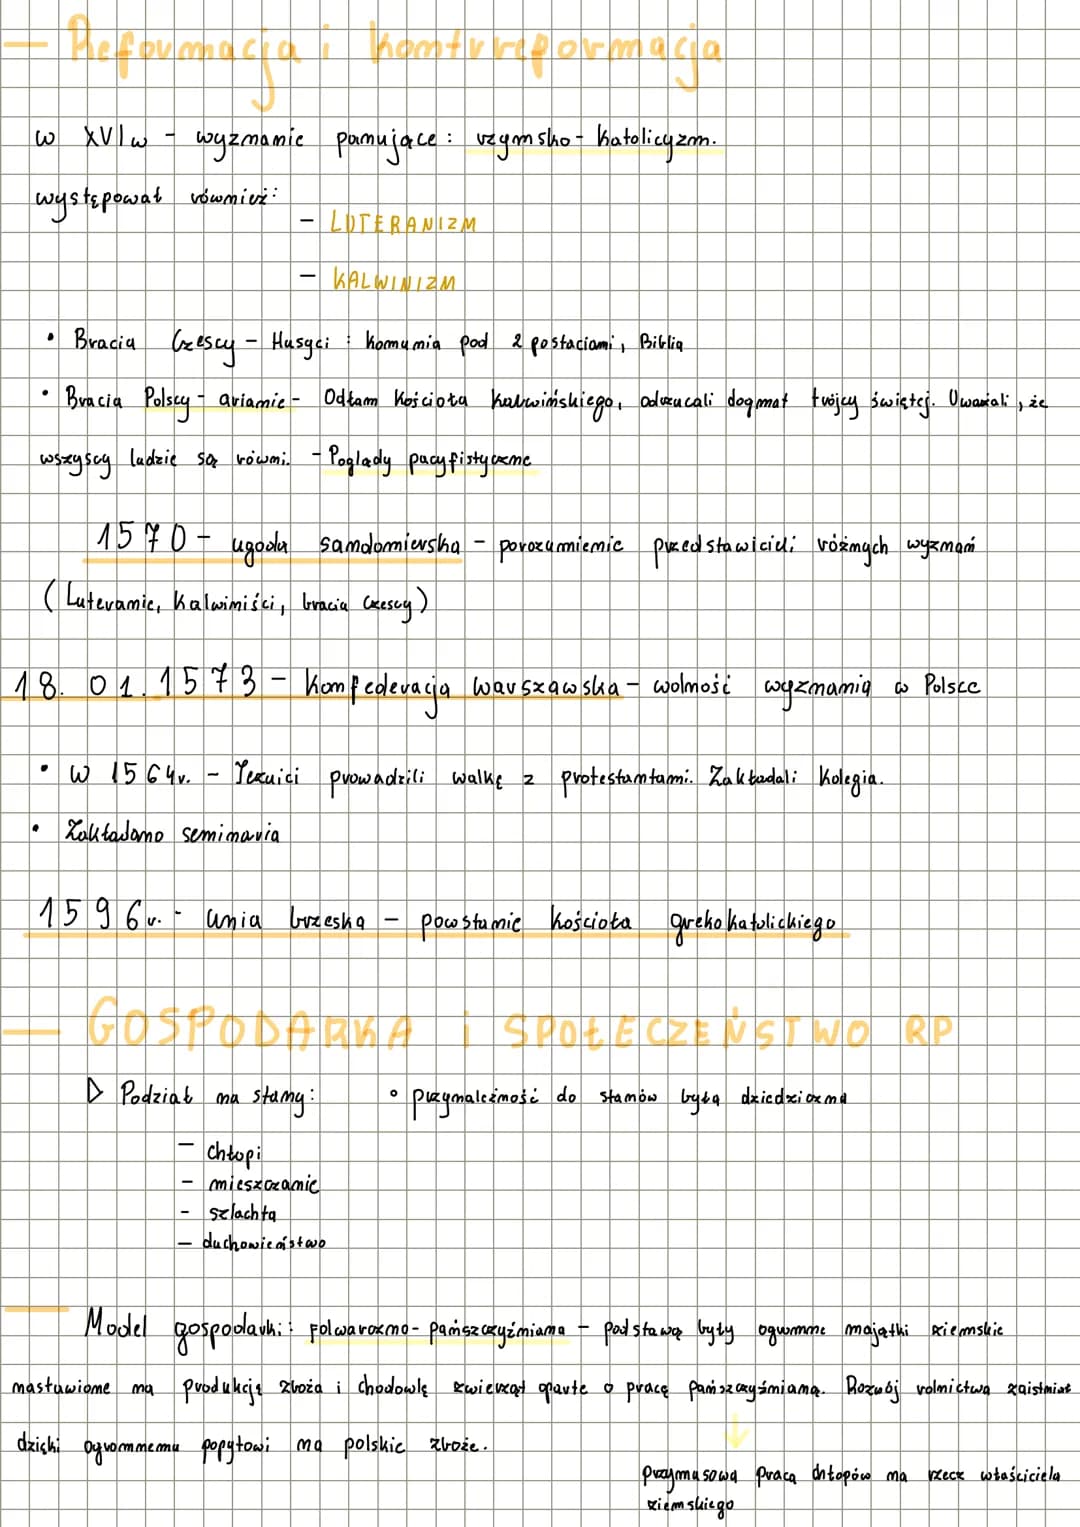 — Reformacja i kontrreformacja
w XVI w - wyznanie panujące: rzymsko-katolicyzm.
występował również:
- LUTERANIZM
- KALWINIZM
• Bracia Czescy - Husyci : komunia pod 2 postaciami, Biblia
• Bracia Polscy - arianie - Odłam Kościoła kalwińskiego, odrzucali dogmat trójcy świętej. Uważali, że
wszyscy ludzie są równi. - Poglądy pacyfistyczne
1570 - ugoda sandomierska - porozumienie przedstawicieli różnych wyznań
(Luteranie, Kalwiniści, bracia Czescy)
18. 01. 1573 - konfederacja warszawska - wolność wyznania w Polsce
• W 1564r. - Jezuici prowadzili walkę z protestantami. Zakładali kolegia.
• Zakładano seminaria
1596r. - unia brzeska - powstanie kościoła grekokatolickiego
— GOSPODARKA i SPOŁECZEŃSTWO RP
▷ Podział na stany: ∘ przynależność do stanów była dziedziczna
- chłopi
- mieszczanie
- szlachta
- duchowieństwo
— Model gospodarki: folwarczno-pańszczyźniana - podstawą były ogromne majątki ziemskie
nastawione na produkcję zboża i chodowlę zwierząt oparte o pracę pańszczyźnianą. Rozwój rolnictwa zaistniał
dzięki ogromnemu popytowi na polskie zboże. ↓
przymusowa praca chłopów na rzecz właściciela
ziemskiego